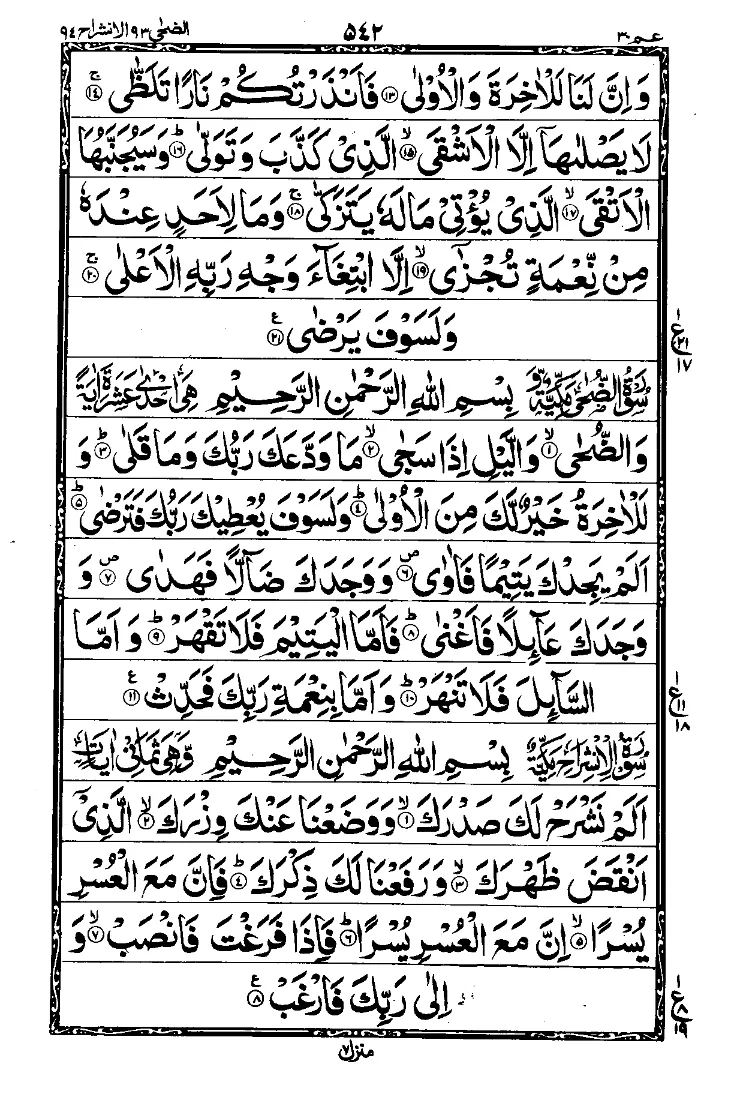 الضحٰى ٩٣ الانشراح ٩٤
٥٤٢
عم ٣٠
وَاِنَّ لَنَا لَلْاٰخِرَةَ وَالْاُوْلٰى ۝١٣ فَاَنْذَرْتُكُمْ نَارًا تَلَظّٰى ۚ۝١٤
لَا يَصْلٰىهَاۤ اِلَّا الْاَشْقَى ۙ۝١٥ الَّذِىْ كَذَّبَ وَتَوَلّٰى ؕ۝١٦ وَسَيُجَنَّبُهَا
الْاَتْقَى ۙ۝١٧ الَّذِىْ يُؤْتِىْ مَالَهٗ يَتَزَكّٰى ۚ۝١٨ وَمَا لِاَحَدٍ عِنْدَهٗ
مِنْ نِّعْمَةٍ تُجْزٰٓى ۙ۝١٩ اِلَّا ابْتِغَآءَ وَجْهِ رَبِّهِ الْاَعْلٰى ۚ۝٢٠
وَلَسَوْفَ يَرْضٰى ۝٢١ ع
سُوْرَةُ الضُّحٰى مَكِّيَّةٌ وَّ بِسْمِ اللّٰهِ الرَّحْمٰنِ الرَّحِيْمِ هِىَ اِحْدٰى عَشْرَةَ اٰيَةً
وَالضُّحٰى ۙ۝١ وَالَّيْلِ اِذَا سَجٰى ۙ۝٢ مَا وَدَّعَكَ رَبُّكَ وَمَا قَلٰى ؕ۝٣ وَ
لَلْاٰخِرَةُ خَيْرٌ لَّكَ مِنَ الْاُوْلٰى ؕ۝٤ وَلَسَوْفَ يُعْطِيْكَ رَبُّكَ فَتَرْضٰى ؕ۝٥
اَلَمْ يَجِدْكَ يَتِيْمًا فَاٰوٰى ۪۝٦ وَوَجَدَكَ ضَآلًّا فَهَدٰى ۪۝٧ وَ
وَجَدَكَ عَآئِلًا فَاَغْنٰى ؕ۝٨ فَاَمَّا الْيَتِيْمَ فَلَا تَقْهَرْ ؕ۝٩ وَ اَمَّا
السَّآئِلَ فَلَا تَنْهَرْ ؕ۝١٠ وَاَمَّا بِنِعْمَةِ رَبِّكَ فَحَدِّثْ ۝١١ ع
سُوْرَةُ الْاِنْشِرَاحِ مَكِّيَّةٌ بِسْمِ اللّٰهِ الرَّحْمٰنِ الرَّحِيْمِ وَّهِىَ ثَمَانِىْ اٰيَاتٍ
اَلَمْ نَشْرَحْ لَكَ صَدْرَكَ ۙ۝١ وَوَضَعْنَا عَنْكَ وِزْرَكَ ۙ۝٢ الَّذِىْۤ
اَنْقَضَ ظَهْرَكَ ۙ۝٣ وَرَفَعْنَا لَكَ ذِكْرَكَ ؕ۝٤ فَاِنَّ مَعَ الْعُسْرِ
يُسْرًا ۙ۝٥ اِنَّ مَعَ الْعُسْرِ يُسْرًا ؕ۝٦ فَاِذَا فَرَغْتَ فَانْصَبْ ۙ۝٧ وَ
اِلٰى رَبِّكَ فَارْغَبْ ۝٨ ع
ع ٢١ ١٧
ع ١١ ١٨
ع ٨ ١٩
منزل ٧